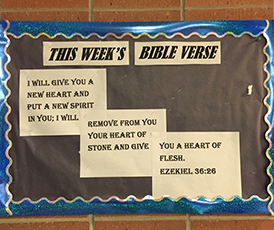 THIS WEEK'S BIBLE VERSE
I WILL GIVE YOU A
NEW HEART AND
PUT A NEW SPIRIT
IN YOU; I WILL
REMOVE FROM YOU
YOUR HEART OF
STONE AND GIVE
YOU A HEART OF
FLESH.
EZEKIEL 36:26